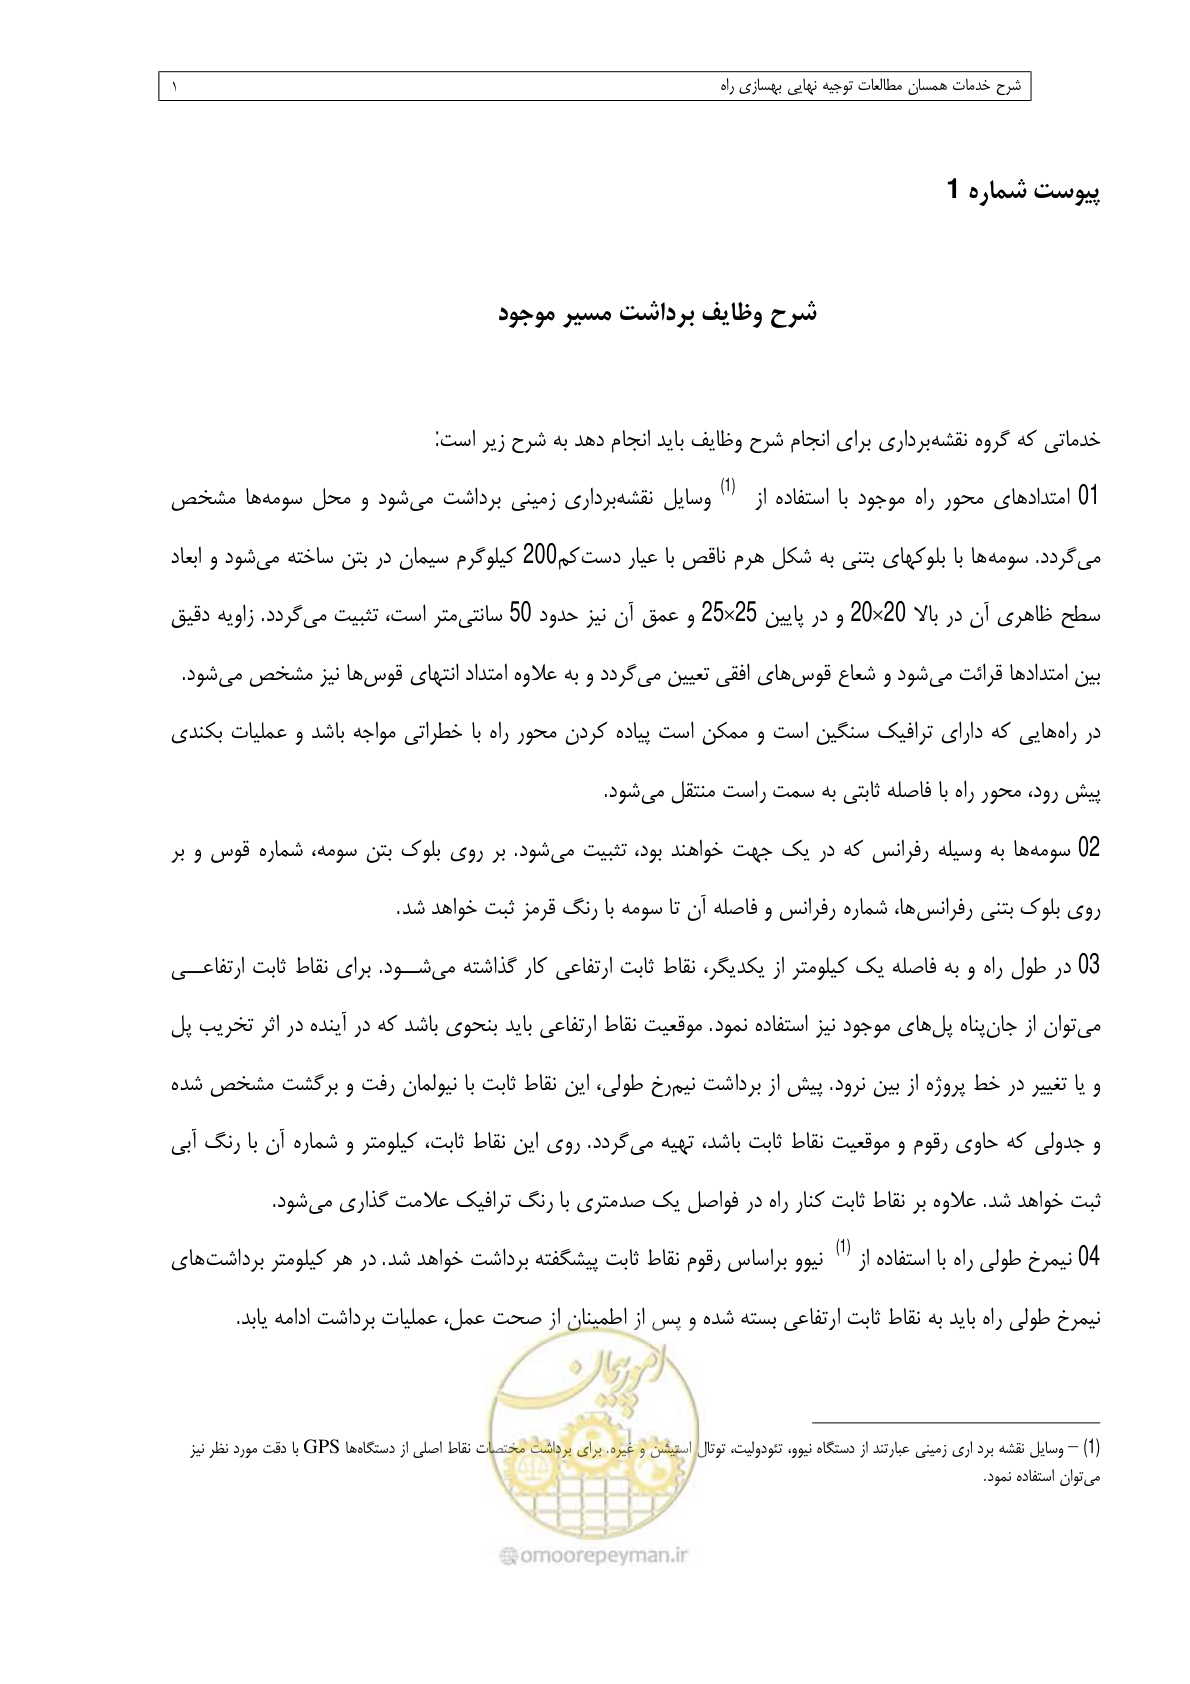 شرح خدمات همسان مطالعات توجیه نهایی بهسازی راه ۱
پیوست شماره 1
شرح وظایف برداشت مسیر موجود
خدماتی که گروه نقشه‌برداری برای انجام شرح وظایف باید انجام دهد به شرح زیر است:
01 امتدادهای محور راه موجود با استفاده از (1) وسایل نقشه‌برداری زمینی برداشت می‌شود و محل سومه‌ها مشخص
می‌گردد. سومه‌ها با بلوکهای بتنی به شکل هرم ناقص با عیار دست‌کم200 کیلوگرم سیمان در بتن ساخته می‌شود و ابعاد
سطح ظاهری آن در بالا 20×20 و در پایین 25×25 و عمق آن نیز حدود 50 سانتی‌متر است، تثبیت می‌گردد. زاویه دقیق
بین امتدادها قرائت می‌شود و شعاع قوس‌های افقی تعیین می‌گردد و به علاوه امتداد انتهای قوس‌ها نیز مشخص می‌شود.
در راه‌هایی که دارای ترافیک سنگین است و ممکن است پیاده کردن محور راه با خطراتی مواجه باشد و عملیات بکندی
پیش رود، محور راه با فاصله ثابتی به سمت راست منتقل می‌شود.
02 سومه‌ها به وسیله رفرانس که در یک جهت خواهند بود، تثبیت می‌شود. بر روی بلوک بتن سومه، شماره قوس و بر
روی بلوک بتنی رفرانس‌ها، شماره رفرانس و فاصله آن تا سومه با رنگ قرمز ثبت خواهد شد.
03 در طول راه و به فاصله یک کیلومتر از یکدیگر، نقاط ثابت ارتفاعی کار گذاشته می‌شــود. برای نقاط ثابت ارتفاعــی
می‌توان از جان‌پناه پل‌های موجود نیز استفاده نمود. موقعیت نقاط ارتفاعی باید بنحوی باشد که در آینده در اثر تخریب پل
و یا تغییر در خط پروژه از بین نرود. پیش از برداشت نیم‌رخ طولی، این نقاط ثابت با نیولمان رفت و برگشت مشخص شده
و جدولی که حاوی رقوم و موقعیت نقاط ثابت باشد، تهیه می‌گردد. روی این نقاط ثابت، کیلومتر و شماره آن با رنگ آبی
ثبت خواهد شد. علاوه بر نقاط ثابت کنار راه در فواصل یک صدمتری با رنگ ترافیک علامت گذاری می‌شود.
04 نیمرخ طولی راه با استفاده از (1) نیوو براساس رقوم نقاط ثابت پیشگفته برداشت خواهد شد. در هر کیلومتر برداشت‌های
نیمرخ طولی راه باید به نقاط ثابت ارتفاعی بسته شده و پس از اطمینان از صحت عمل، عملیات برداشت ادامه یابد.
امور پیمان
(1) – وسایل نقشه برد اری زمینی عبارتند از دستگاه نیوو، تئودولیت، توتال استیشن و غیره. برای برداشت مختصات نقاط اصلی از دستگاه‌ها GPS با دقت مورد نظر نیز
می‌توان استفاده نمود.
@omoorepeyman.ir